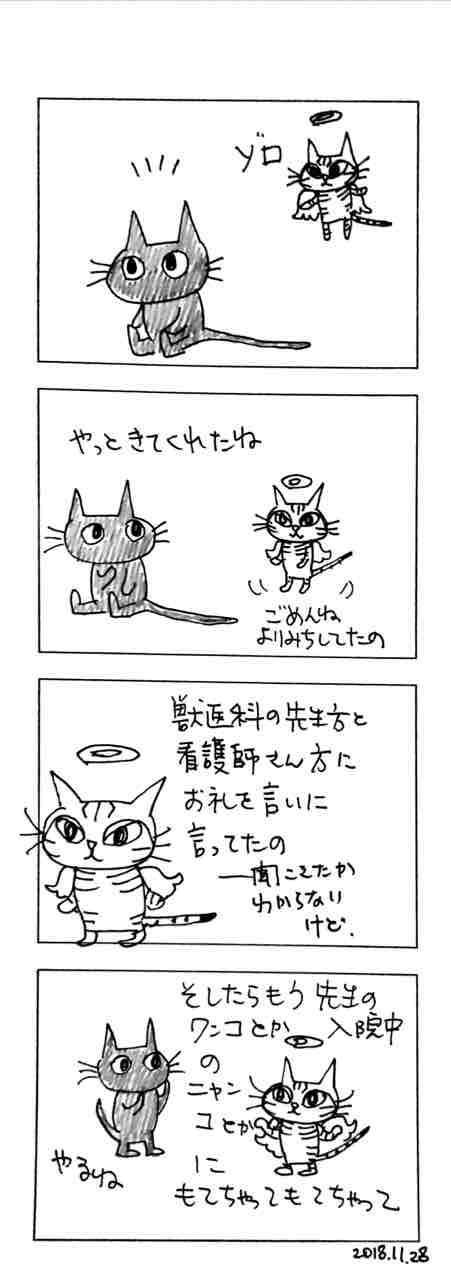 ゾロ
やっときてくれたね
ごめんね
よりみちしてたの
獣医科の先生方と
看護師さん方に
お礼を言いに
言ってたの
一聞こえたか
わからない
けど.
そしたらもう先生の
ワンコとか入院中
の
ニャン
コとか
に
もてちゃってもてちゃって
やるね
2018.11.28